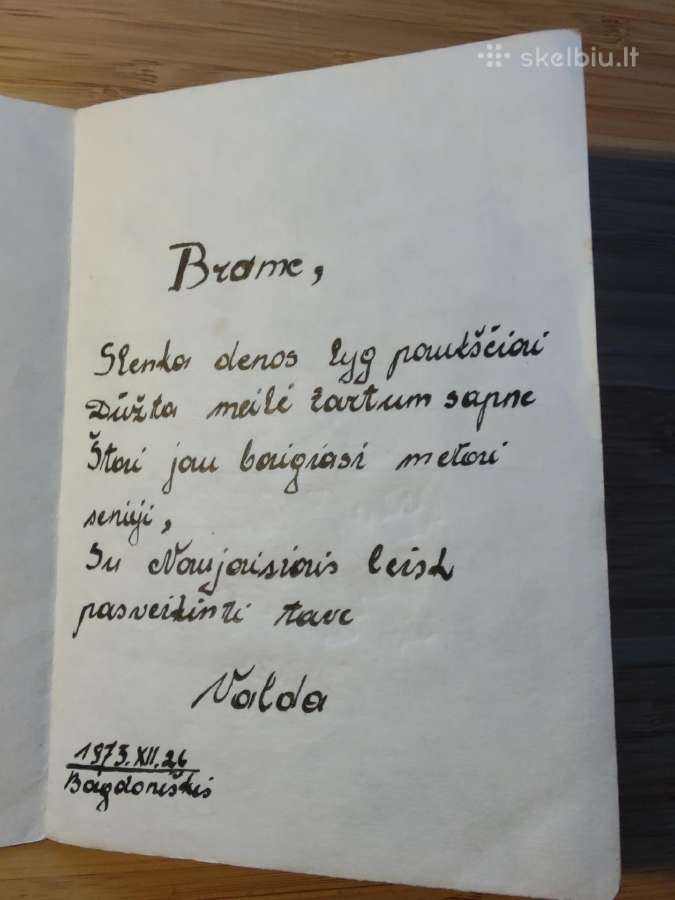 skelbiu.lt
Brone,
Slenka denos lyg paukščiai
Dūžta meilė tartum sapne
Štai jau baigiasi metai
senieji,
Su Naujaisiais leisk
pasveikinti tave
Valda
1973.XII.26
Bagdoniškis